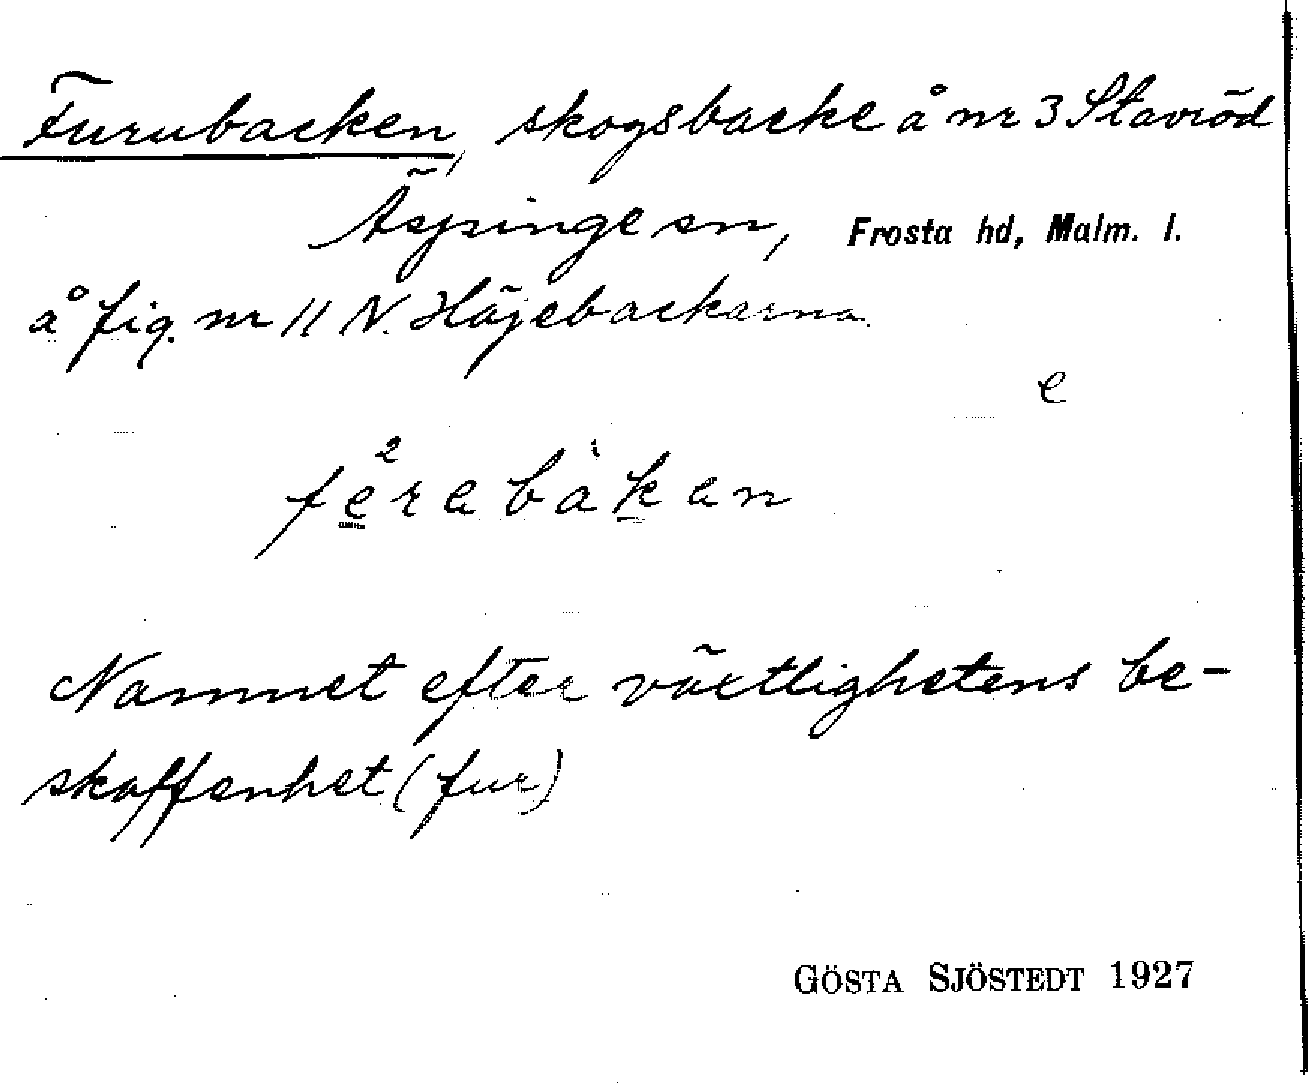 Furubacken, skogsbacke å nr 3 Stavröd
Äspinge sn, Frosta hd, Malm. l.
å fig. nr 11 N. Höjebackarna.
e
Namnet efter växtlighetens be-
skaffenhet (fur)
GÖSTA SJÖSTEDT 1927